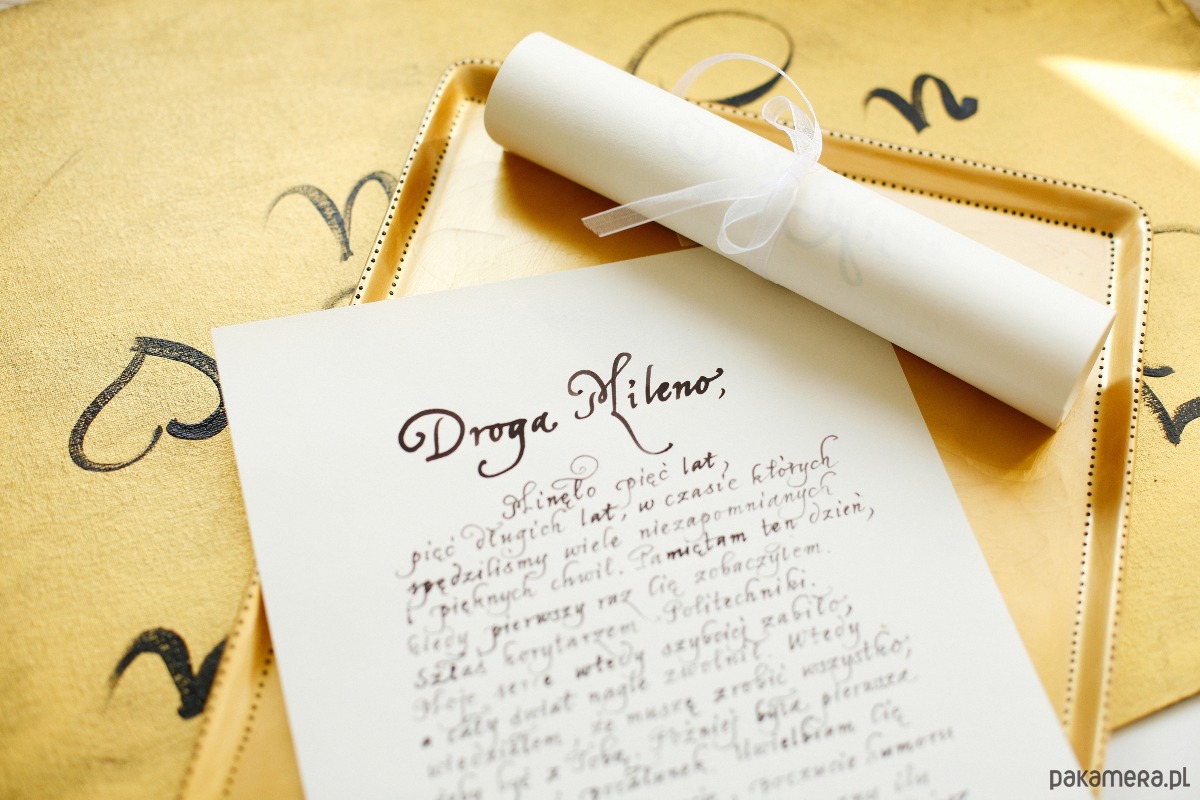 n
n
Droga Mileno,
Minęło pięć lat,
pięć długich lat, w czasie których
spędziliśmy wiele niezapomnianych
i pięknych chwil. Pamiętam ten dzień,
kiedy pierwszy raz Cię zobaczyłem.
Szłaś korytarzem Politechniki.
Moje serce wtedy szybciej zabiło,
a cały świat nagle zwolnił. Wtedy
wiedziałem, że muszę zrobić wszystko,
żeby być z Tobą. Później była pierwsza
Uwielbiam Cię
poczucie humoru
n
pakamera.pl